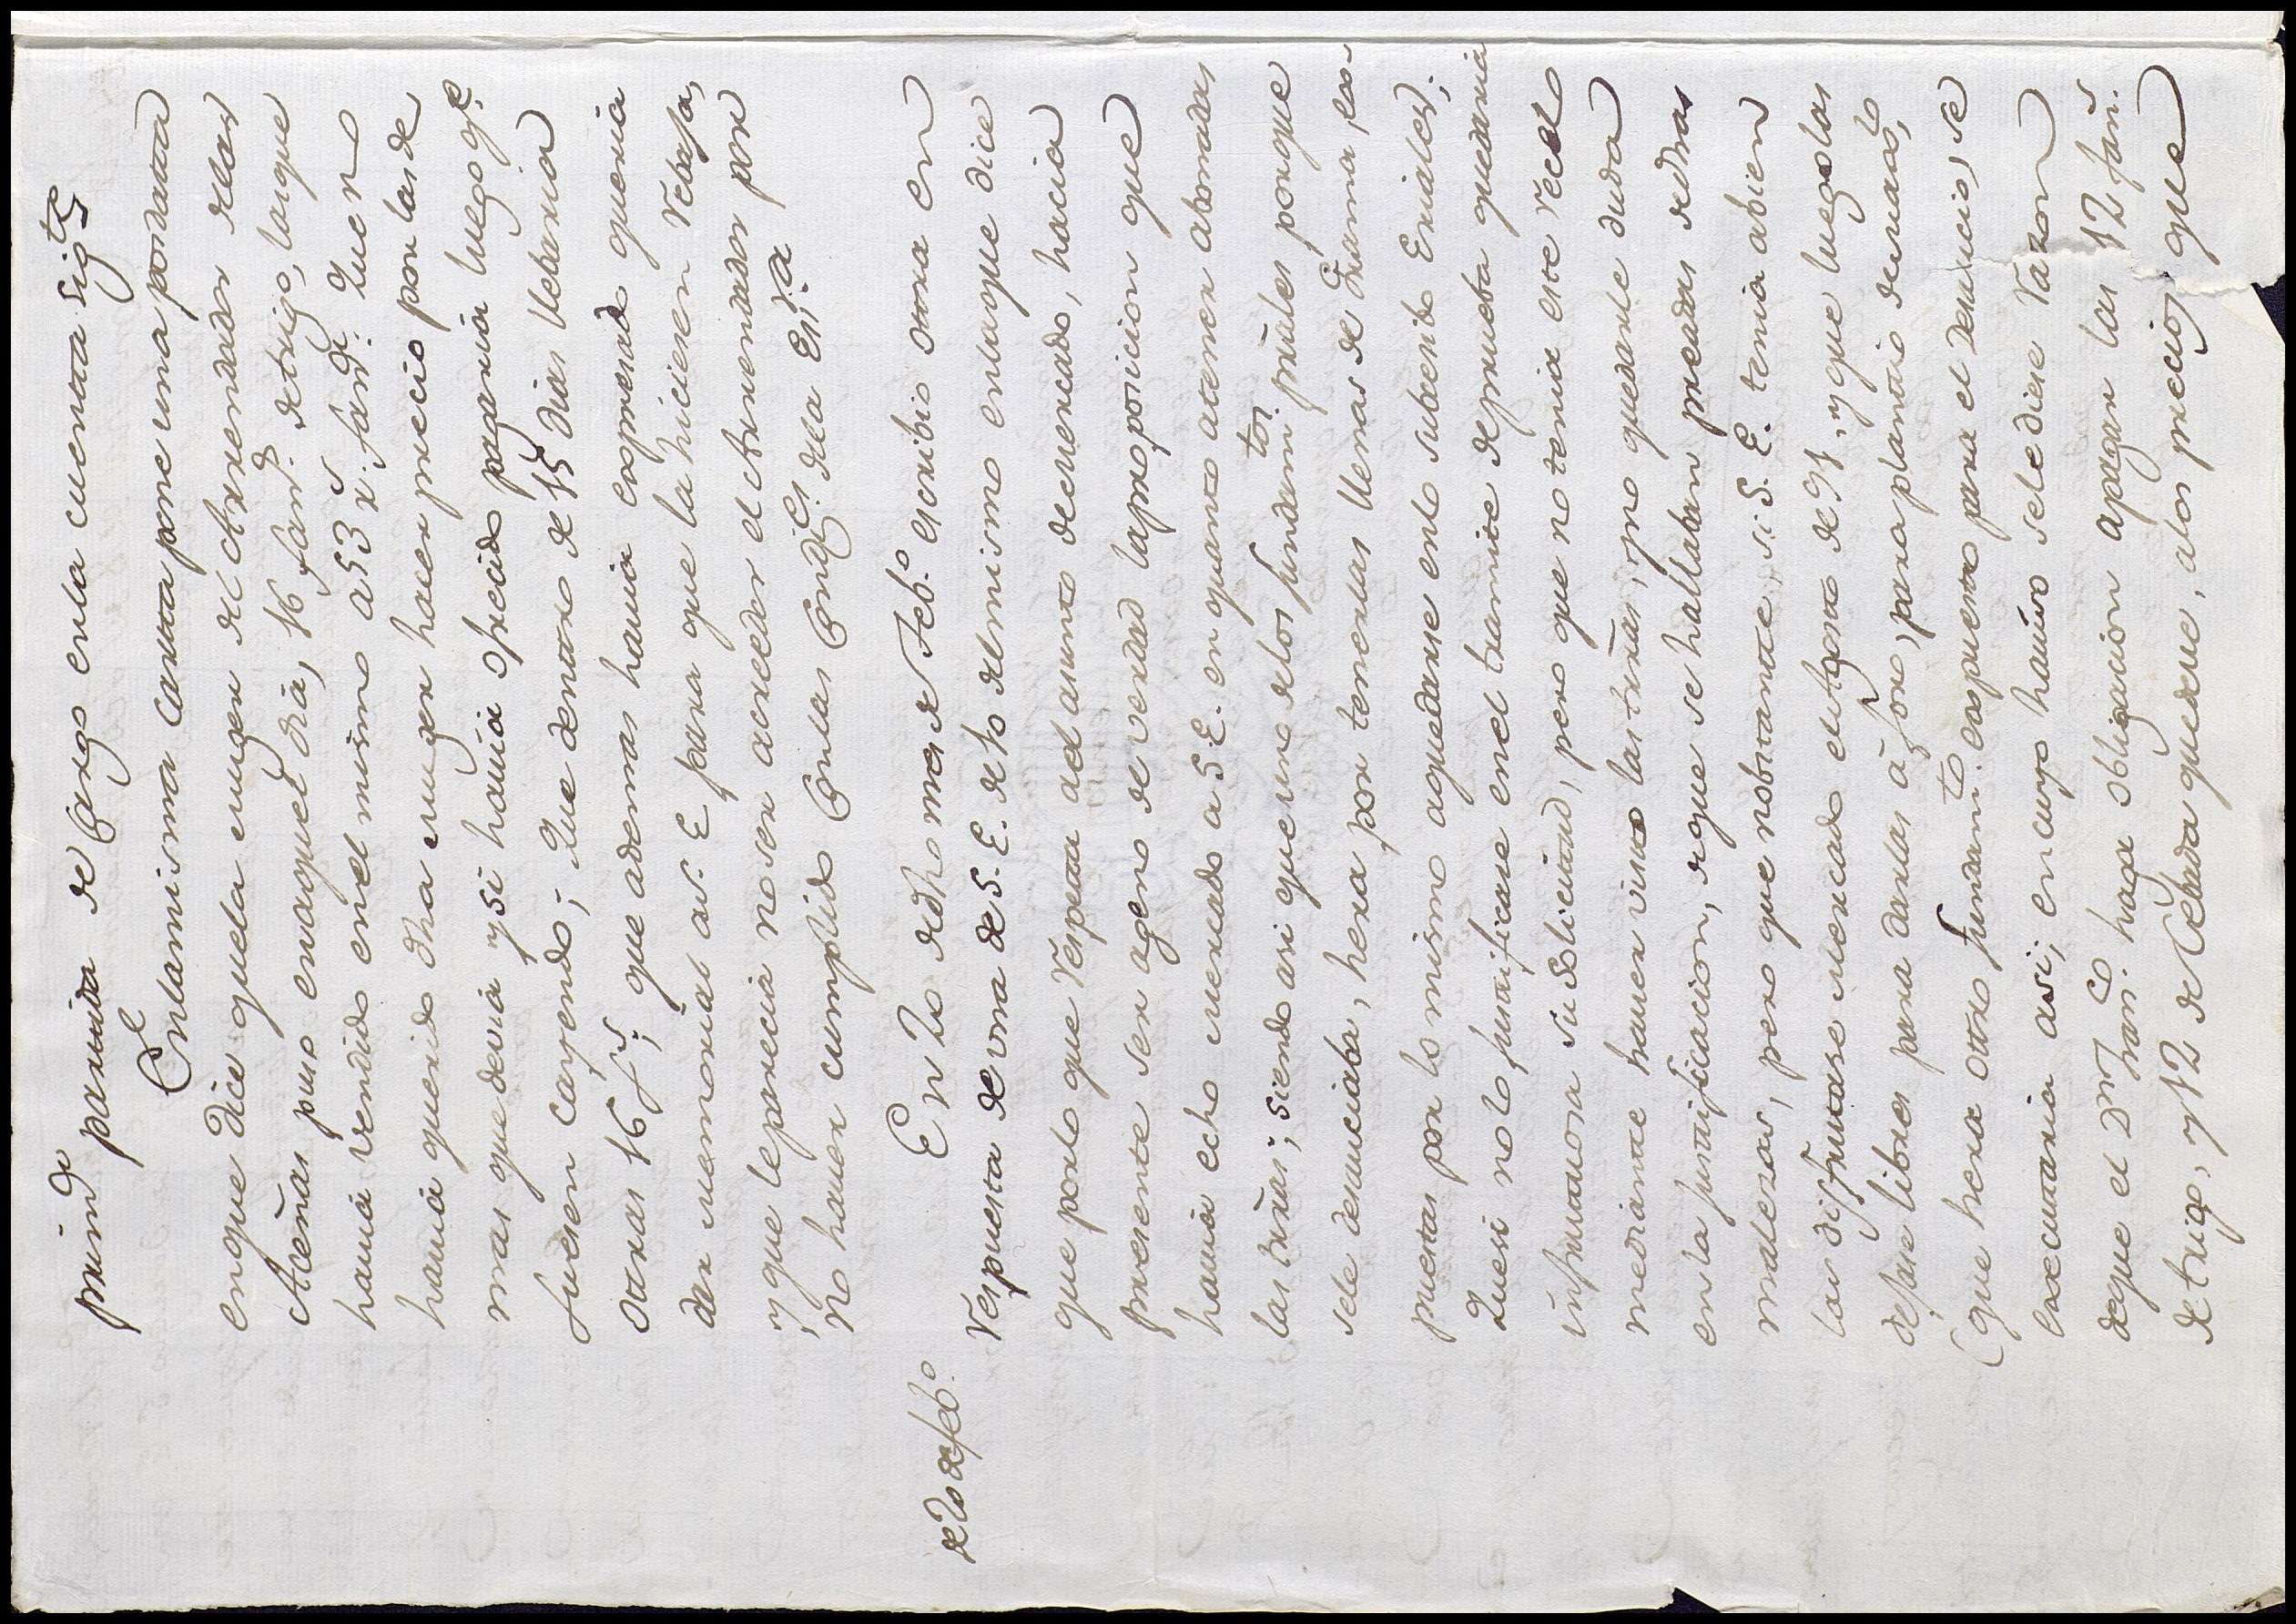 primª partida de Cargo en la cuenta sigte
En la misma Carta pone una postdata
en que dice que la muger del Arrendador de las
Aceñas puso en aquel dia, 16 fans. de trigo, las que
havia vendido en el mismo a 53 rs. fanª. Que no
havia querido dha muger hacer precio por las de
mas que devia y si havia ofrecido pagaria luego qe.
fuesen cayendo; Que dentro de 15 dias llebaria
otras 16 fs.; que ademas havia expresado queria
dar memorial a S. E. para que la hiciesen rebaja,
y que le parecia no ser acreedor el Arrendador por
no haver cumplido con las Condes. de la Essra.
de 20 de febº.
En 20 de dho mes de Febº. escribio otra en
respuesta de una de S. E. de 10 del mismo en la que dice
que por lo que respecta al asunto de mercado, hacia
presente ser ageno de verdad la proposicion que
havia echo mercado a S. E. en quanto a tener abonadas
las tierras; siendo asi que uno de los fundamtos. prales porque
se le denunciaba, hera por tenerlas llenas de Grama, es
puestas por lo mismo a quedarse en lo subcesibo Eriales;
Que si no lo justificase en el tramite de prueba quedaria
infrutuosa su solicitud, pero que no tenia este recelo
mediante haver visto las tierras, y no quedarle duda
en la justificacion, de que se hallaban preñadas de dhas
malezas, pero que no obstante, si S. E. tenia a bien
las disfrutase mercado el Agosto de 91, y que luego las
dejase libres para darlas à foro, para plantio de majuelo,
(que hera otro fundamto. expuesto para el denuncio, se
executaria asi; en cuyo havíso se le diese razon
de que el Dn. Franco. haga obligacion a pagar las 12 fans.
de trigo, y 12 de Cebada que deve, a los precios que